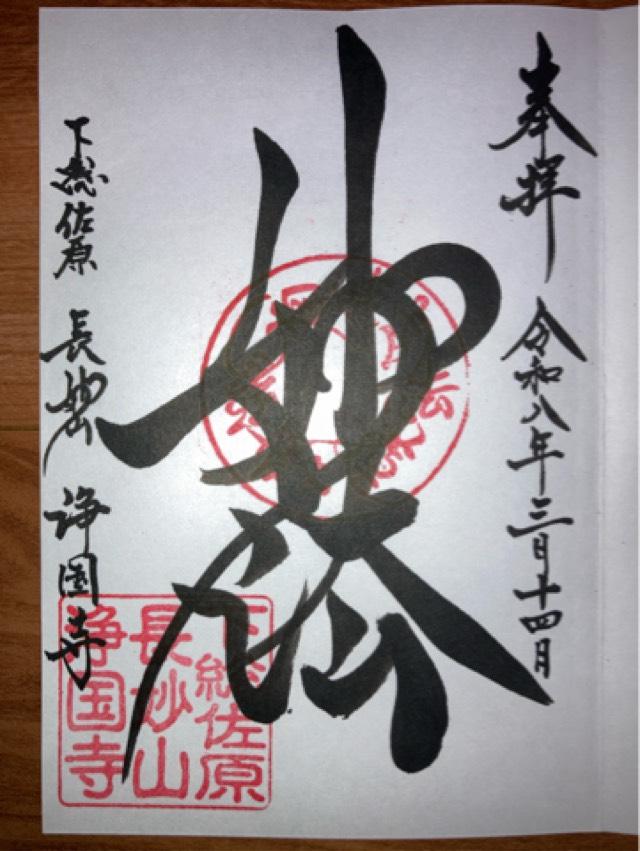 奉拝 令和八年三月十四日
妙法
下総佐原 長妙山 浄國寺
下総佐原
長妙山
浄国寺